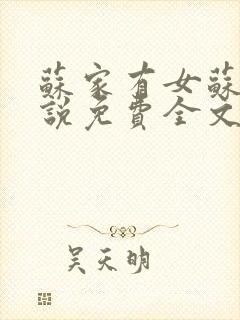 蘇家有女蘇
說免費全文
吴天明